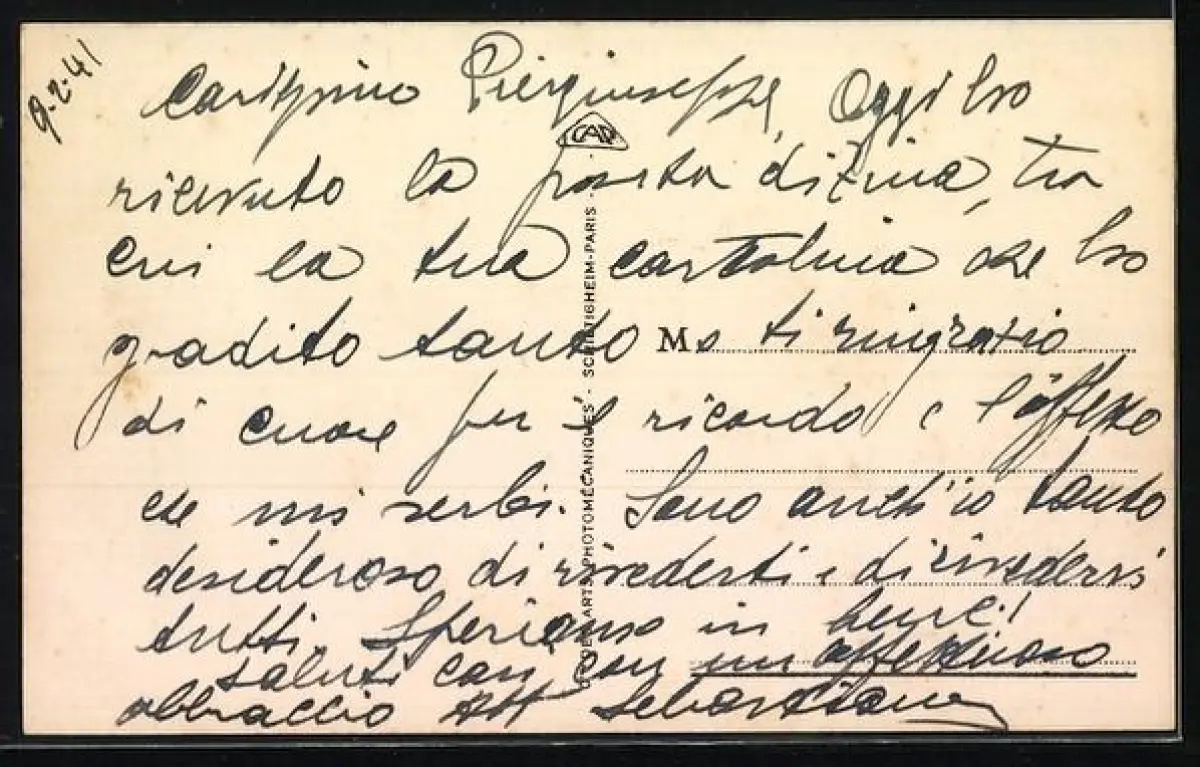 9-2-41
Carissimo Piergiuseppe, Oggi ho
ricevuto la posta di Zina, tra
cui la tua cartolina che ho
gradito tanto
M
e ti ringrazio
di cuore per il ricordo e l'affetto
che mi serbi. Sono anch'io tanto
desideroso di rivederti e di rivedervi
tutti. Speriamo in bene!
Saluti cari con un affettuoso
abbraccio Sebastiano
CAP
PHOTOMÉCANIQUES - SCHILTIGHEIM-PARIS